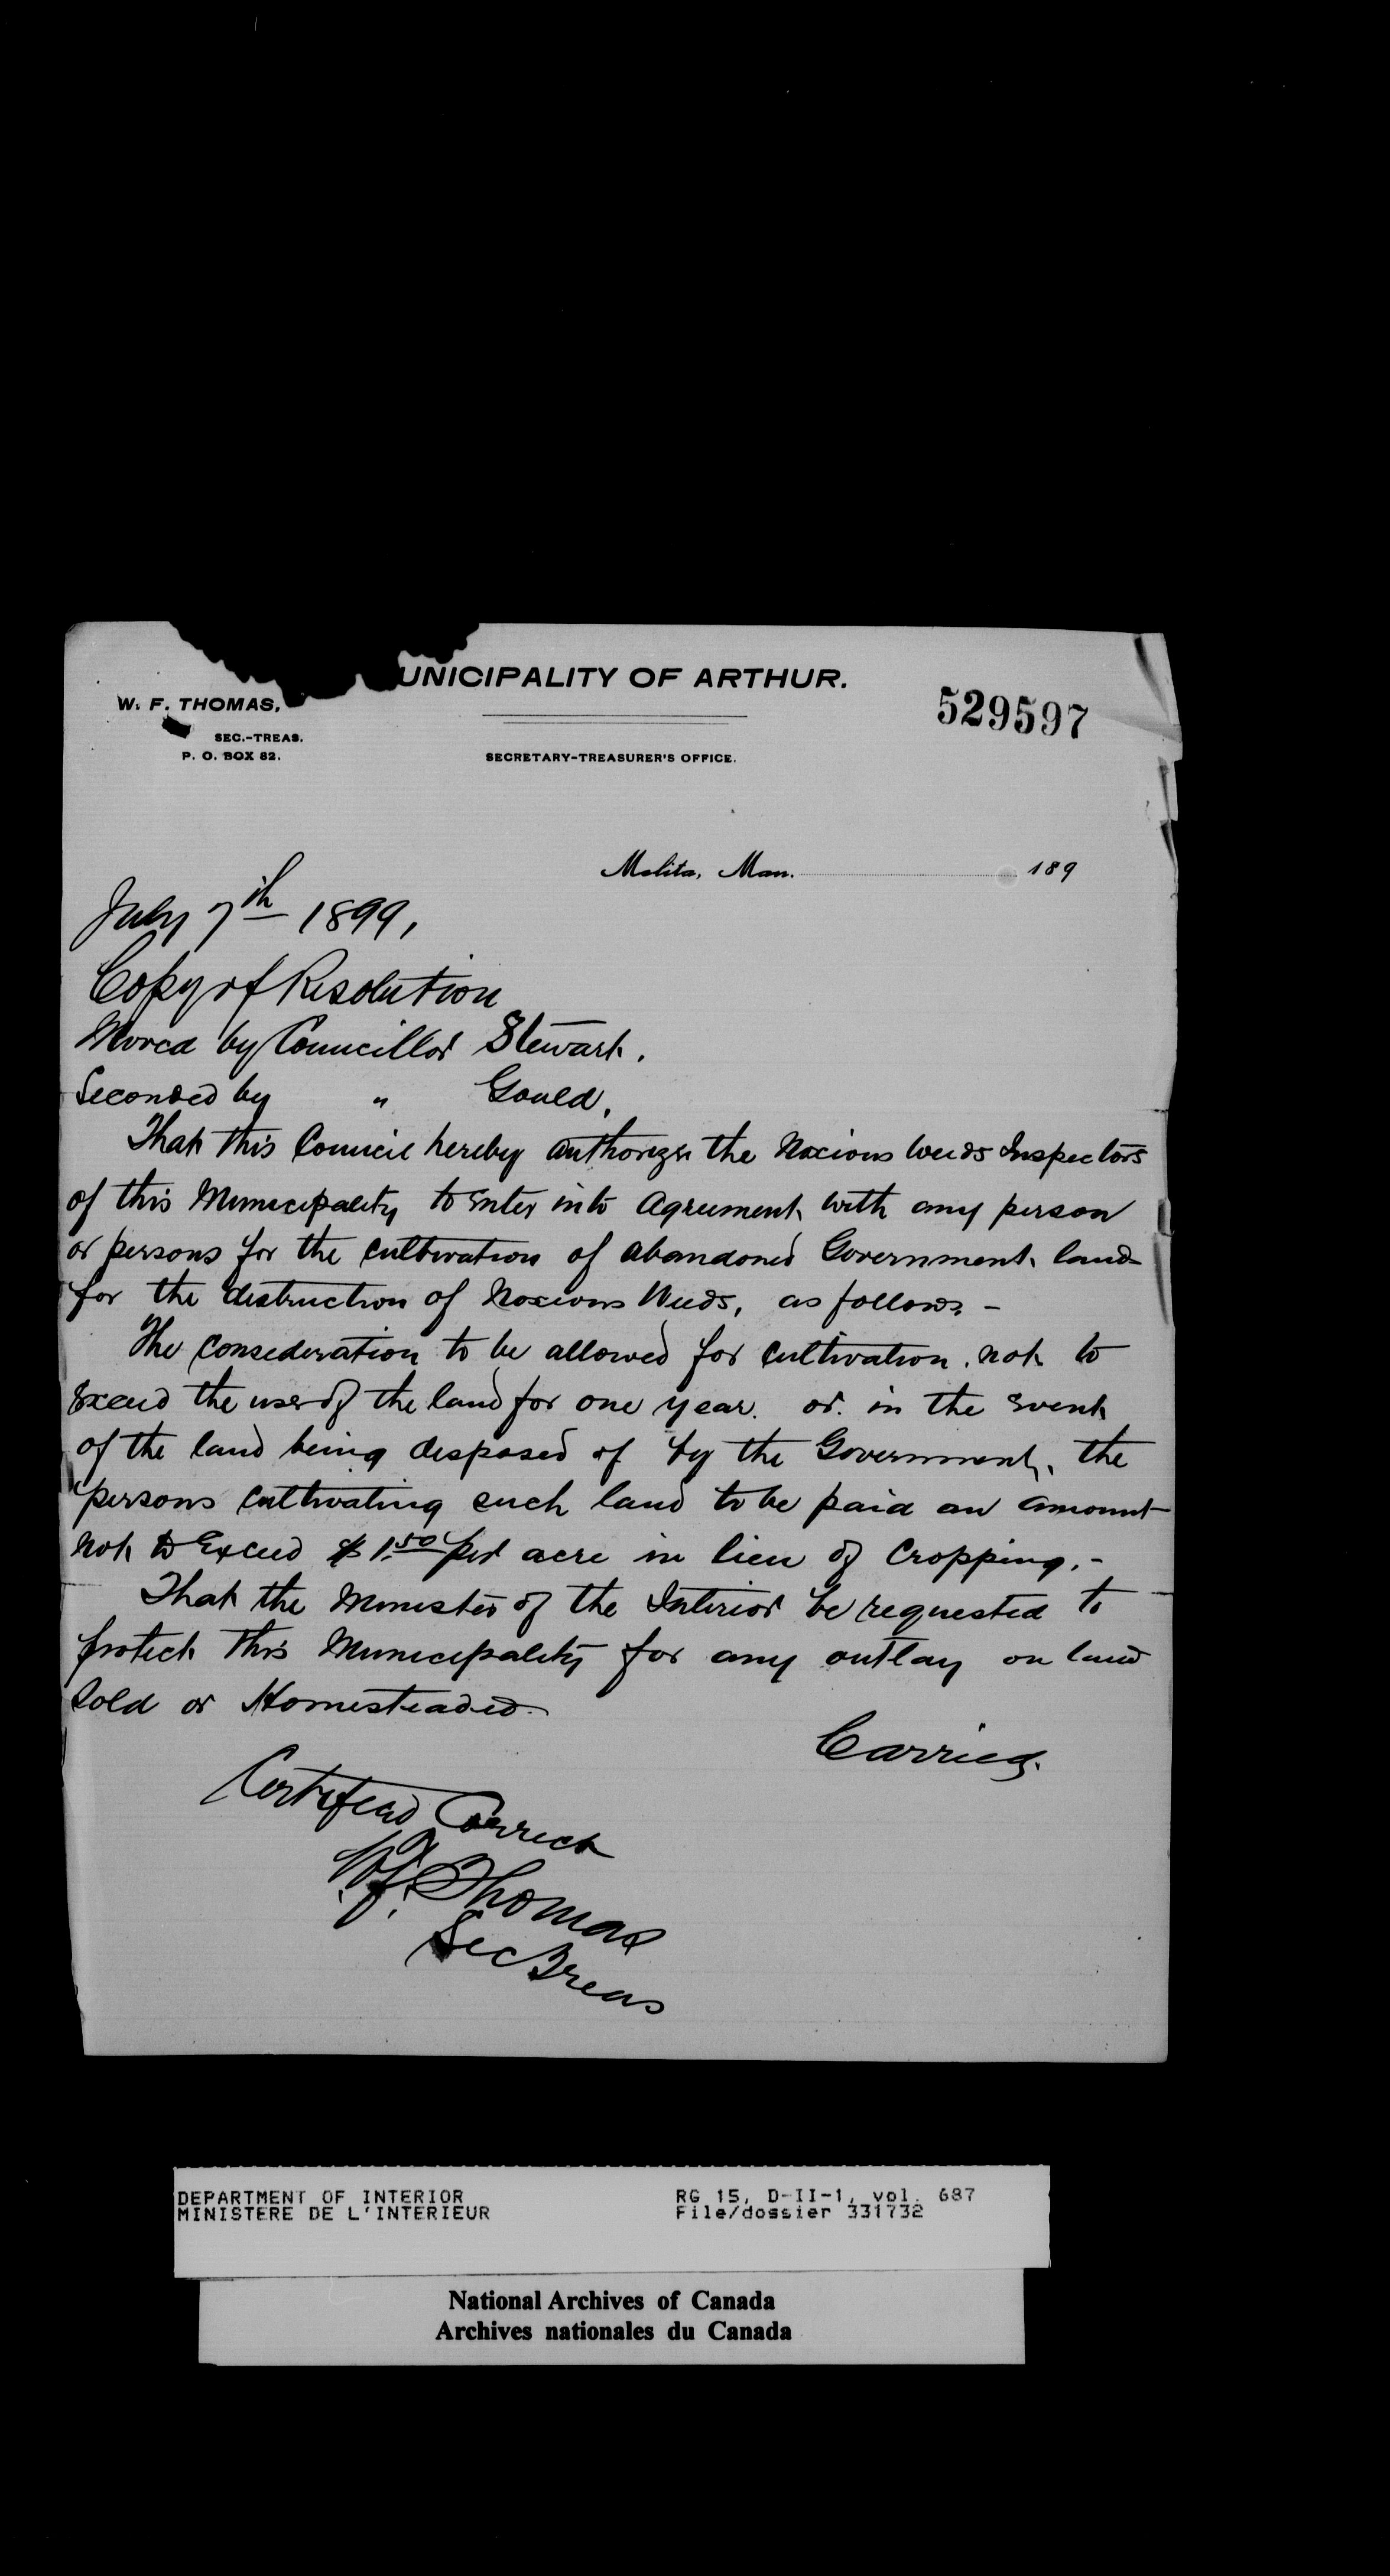 UNICIPALITY OF ARTHUR.
W. F. THOMAS,
SEC.-TREAS.
P. O. BOX 82.
529597
SECRETARY-TREASURER'S OFFICE.
Melita, Man. 189
July 7th 1899,
Copy of Resolution
Moved by Councillor Stewart.
Seconded by " Gould.
That this Council hereby authorizes the Noxious Weeds Inspectors
of this Municipality to enter into Agreement with any person
or persons for the cultivation of abandoned Government land
for the destruction of Noxious Weeds, as follows. -
The consideration to be allowed for cultivation. not to
exceed the use of the land for one year. or. in the event
of the land being disposed of by the Government, the
persons cultivating such land to be paid an amount
not to Exceed $1.50 per acre in lieu of cropping. -
That the Minister of the Interior be requested to
protect this Municipality for any outlay on land
Sold or Homesteaded.
Carried.
Certified Correct
W.F. Thomas
Sec Treas
DEPARTMENT OF INTERIOR
MINISTERE DE L'INTERIEUR
RG 15, D-II-1, vol. 687
File/dossier 331732
National Archives of Canada
Archives nationales du Canada